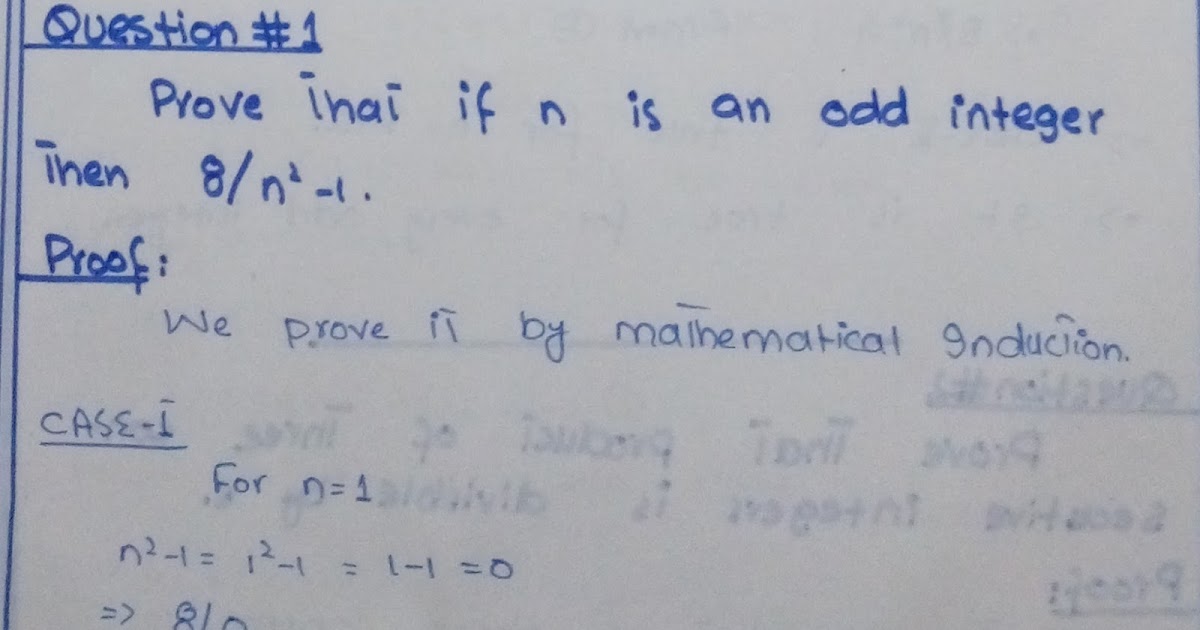 Question #1
Prove that if n is an odd integer
then 8/n²-1.
Proof:
We prove it by mathematical Induction.
CASE-I
For n=1
n²-1 = 1²-1 = 1-1 = 0
=> 8/0